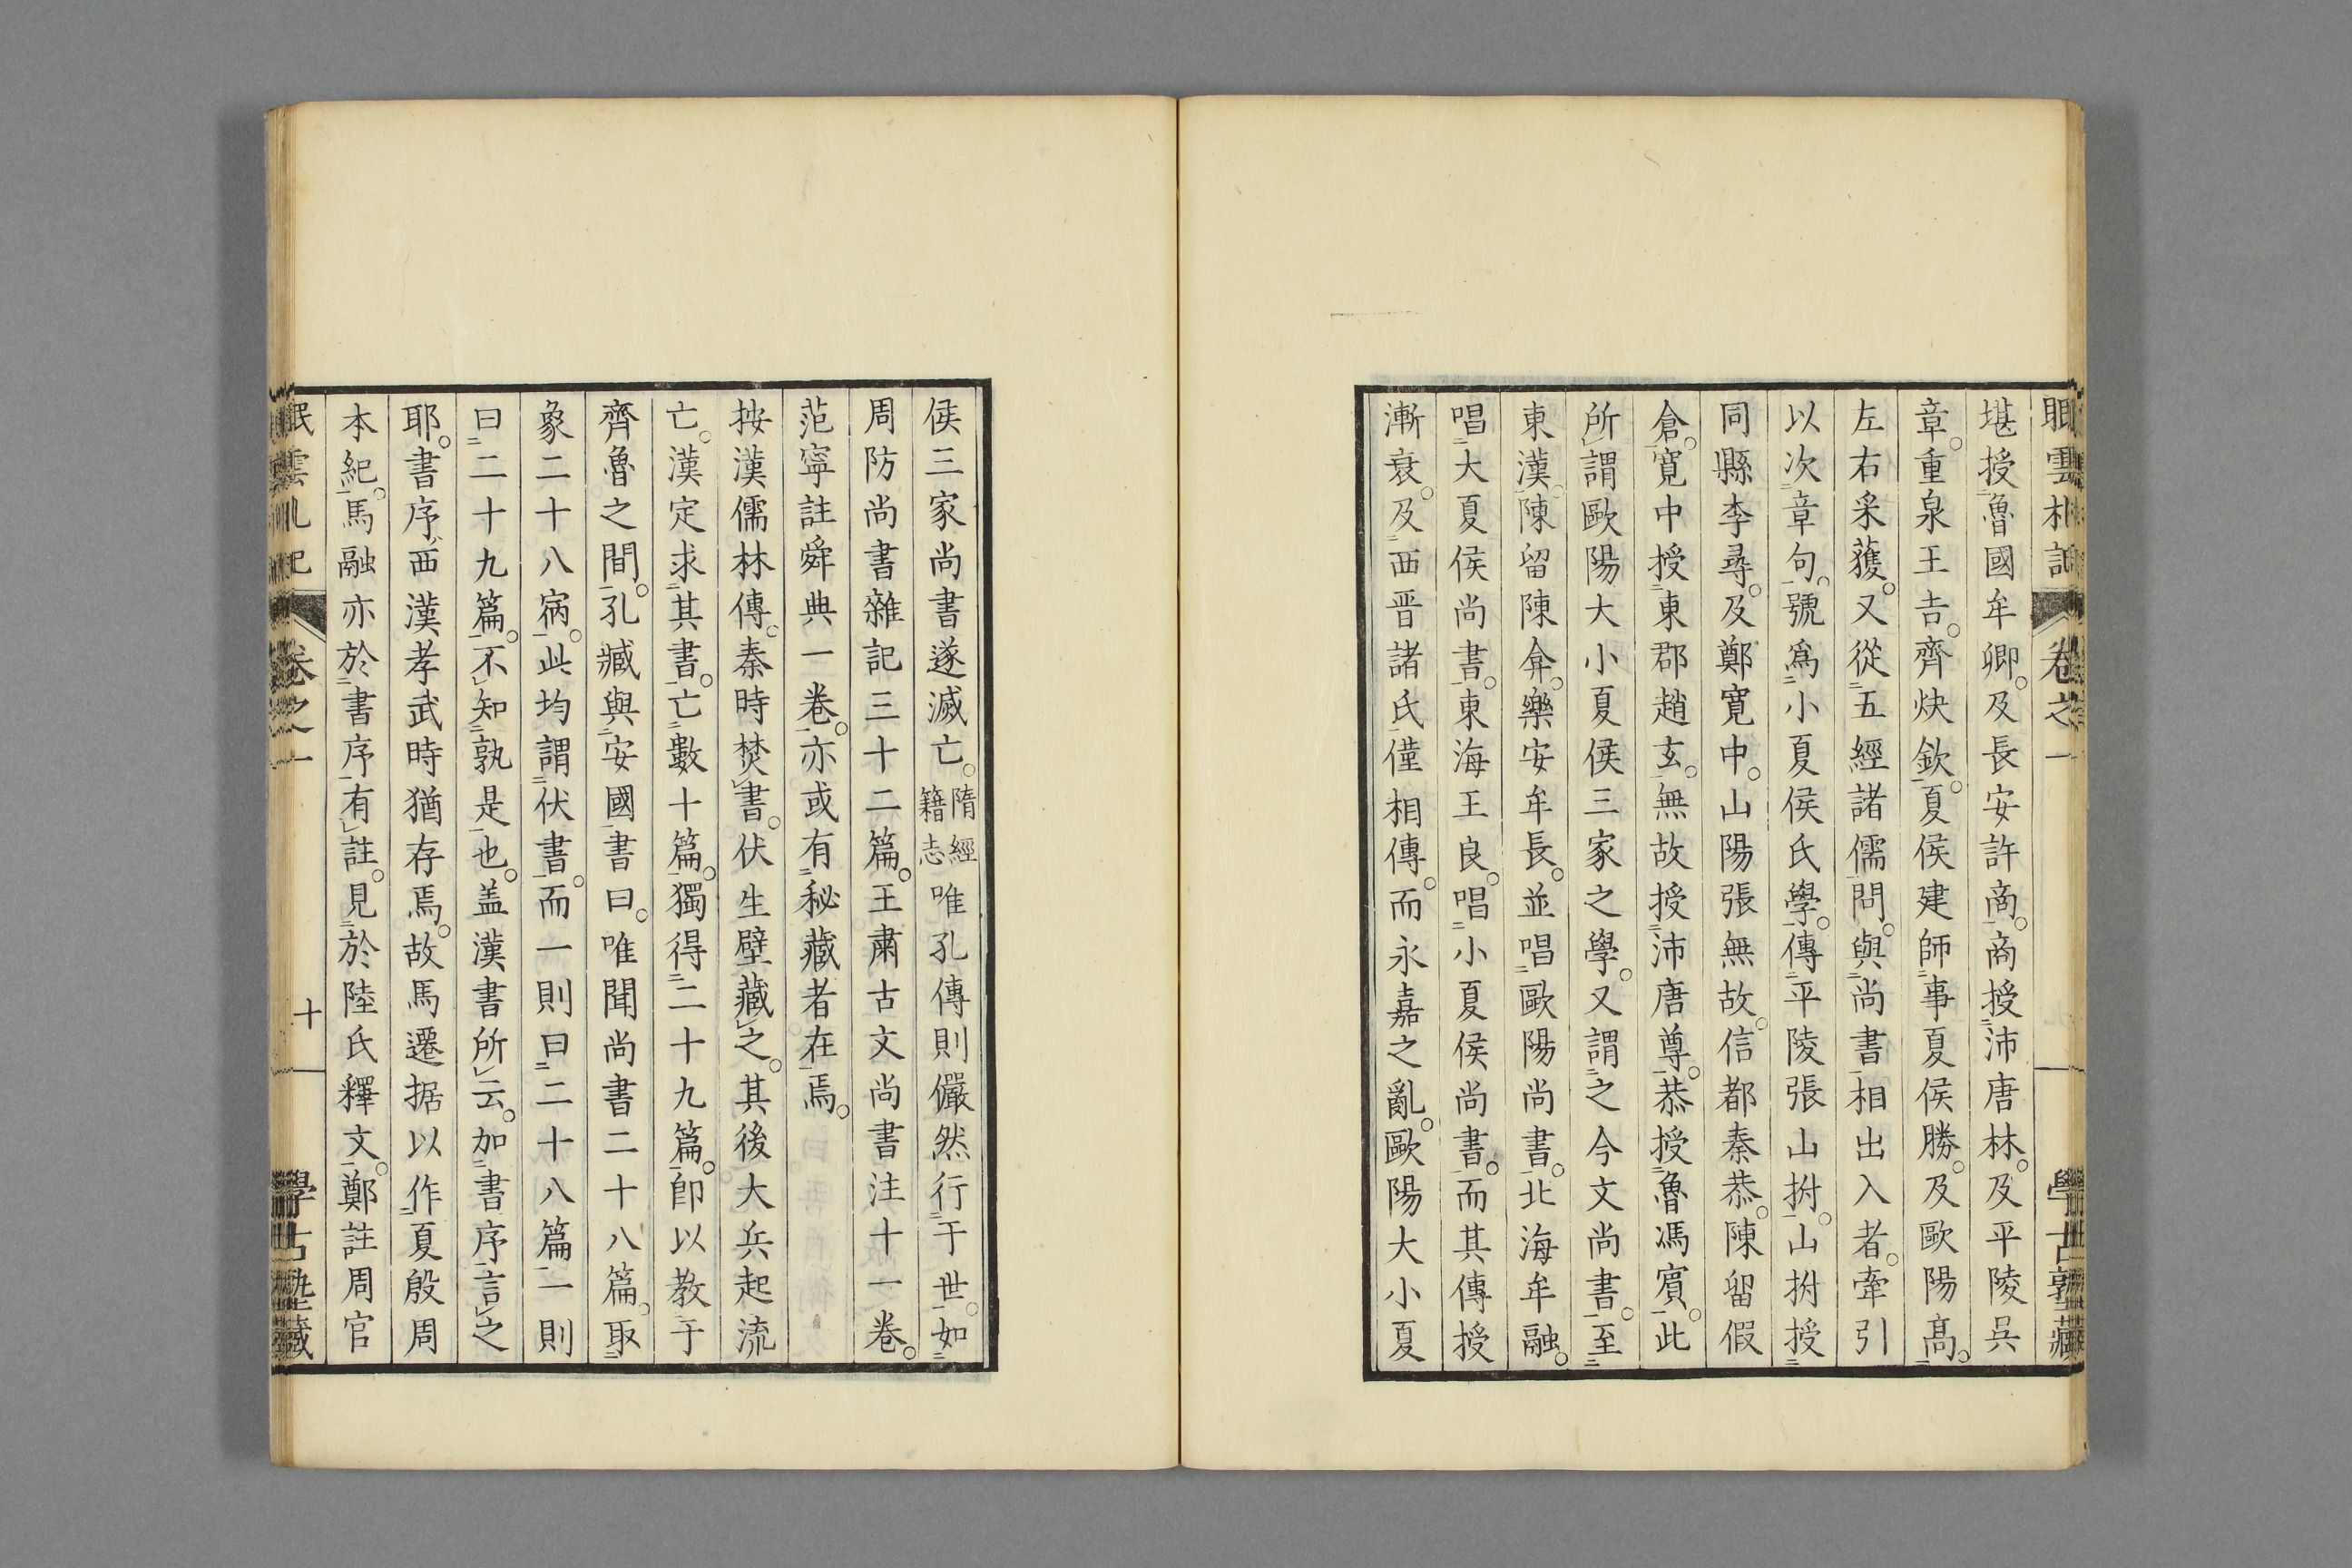 堪授魯國牟卿。及長安許商。商授沛唐林。及平陵吳
章。重泉王吉。齊炔欽。夏侯建師事夏侯勝。及歐陽高。
左右采獲。又從五經諸儒問。與尚書相出入者。牽引
以次章句。號爲小夏侯氏學。傳平陵張山拊。山拊授
同縣李尋。及鄭寬中。山陽張無故。信都秦恭。陳留假
倉。寬中授東郡趙玄。無故授沛唐尊。恭授魯馮賓。此
所謂歐陽大小夏侯三家之學。又謂之今文尚書。至
東漢陳留陳弇。樂安牟長。並唱歐陽尚書。北海牟融。
唱大夏侯尚書。東海王良。唱小夏侯尚書。而其傳授
漸衰。及西晋諸氏僅相傳。而永嘉之亂。歐陽大小夏
侯三家尚書遂滅亡。隋經籍志唯孔傳則儼然行于世。如
周防尚書雜記三十二篇。王肅古文尚書注十一卷。
范寧註舜典一卷。亦或有秘藏者在焉。
按漢儒林傳。秦時焚書。伏生壁藏之。其後大兵起流
亡。漢定求其書。亡數十篇。獨得二十九篇。卽以教于
齊魯之間。孔臧與安國書曰。唯聞尚書二十八篇。取
象二十八宿。此均謂伏書。而一則曰二十八篇一則
曰二十九篇。不知孰是也。盖漢書所云。加書序言之
耶。書序西漢孝武時猶存焉。故馬遷据以作夏殷周
本紀。馬融亦於書序有註。見於陸氏釋文。鄭註周官
卷之一
十